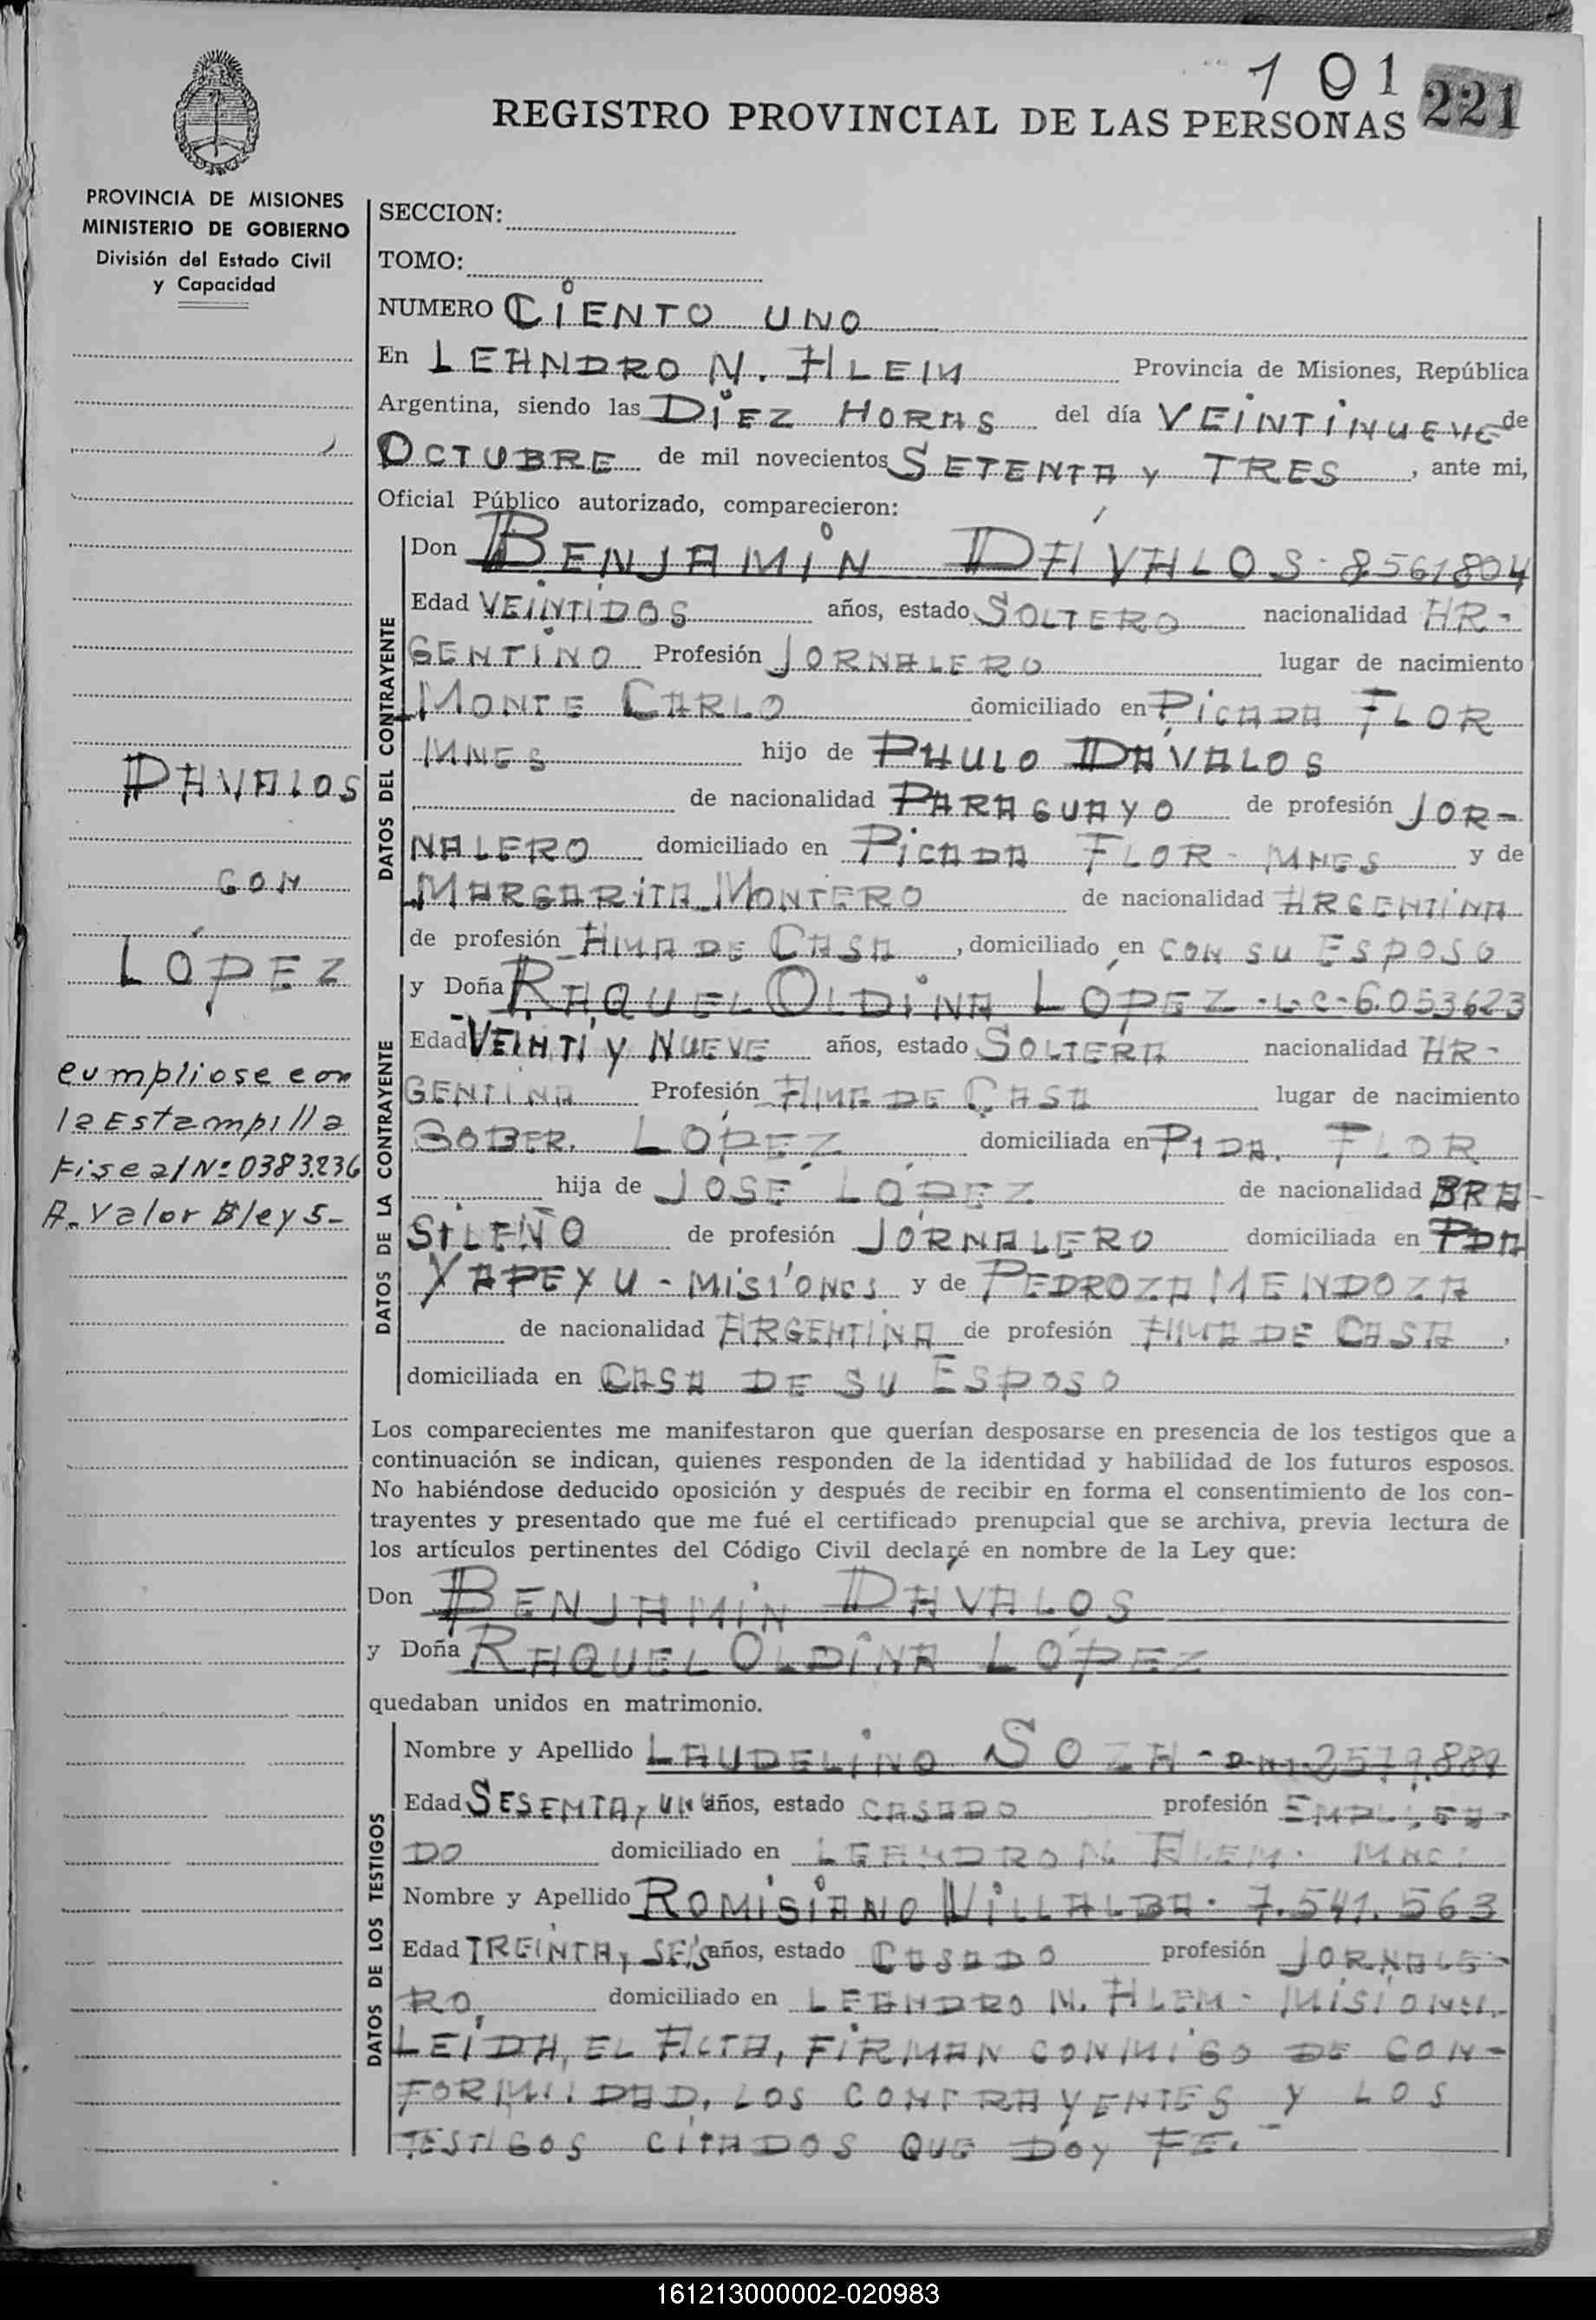 101
221
REGISTRO PROVINCIAL DE LAS PERSONAS
PROVINCIA DE MISIONES
MINISTERIO DE GOBIERNO
División del Estado Civil
y Capacidad
SECCION:
TOMO:
NUMERO CIENTO UNO
En LEANDRO N. ALEM Provincia de Misiones, República
Argentina, siendo las DIEZ HORAS del día VEINTINUEVE de
OCTUBRE de mil novecientos SETENTA Y TRES, ante mi,
Oficial Público autorizado, comparecieron:
DATOS DEL CONTRAYENTE
Don BENJAMIN DÁVALOS - 8561804
Edad VEINTIDOS años, estado SOLTERO nacionalidad AR-
GENTINO Profesión JORNALERO lugar de nacimiento
MONTE CARLO domiciliado en PICADA FLOR
MNES hijo de PAULO DÁVALOS
de nacionalidad PARAGUAYO de profesión JOR-
NALERO domiciliado en PICADA FLOR - MNES y de
MARGARITA MONTERO de nacionalidad ARGENTINA
de profesión AMA DE CASA, domiciliado en CON SU ESPOSO
DAVALOS
CON
LÓPEZ
cumpliose con
la Estampilla
Fiscal Nº 0383.236
A. Valor $ ley 5-
DATOS DE LA CONTRAYENTE
y Doña RAQUEL OLDINA LÓPEZ - L-C- 6.053623
Edad VEINTI Y NUEVE años, estado SOLTERA nacionalidad AR-
GENTINA Profesión AMA DE CASA lugar de nacimiento
GOBER. LÓPEZ domiciliada en PIDA. FLOR
hija de JOSÉ LÓPEZ de nacionalidad BRA-
SILEÑO de profesión JORNALERO domiciliada en PDA
YAPEYU - MISIONES y de PEDROZA MENDOZA
de nacionalidad ARGENTINA de profesión AMA DE CASA,
domiciliada en CASA DE SU ESPOSO
Los comparecientes me manifestaron que querían desposarse en presencia de los testigos que a
continuación se indican, quienes responden de la identidad y habilidad de los futuros esposos.
No habiéndose deducido oposición y después de recibir en forma el consentimiento de los con-
trayentes y presentado que me fué el certificado prenupcial que se archiva, previa lectura de
los artículos pertinentes del Código Civil declaré en nombre de la Ley que:
Don BENJAMIN DÁVALOS
y Doña RAQUEL OLDINA LÓPEZ
quedaban unidos en matrimonio.
DATOS DE LOS TESTIGOS
Nombre y Apellido LAUDELINO SOZA - D-N-I- 2579.889
Edad SESENTA Y UN años, estado CASADO profesión EMPLEA-
DO domiciliado en LEANDRO N. ALEM.
Nombre y Apellido ROMISIANO VILLALBA - 7.541.563
Edad TREINTA Y SEIS años, estado CASADO profesión JORNALE-
RO domiciliado en LEANDRO N. ALEM - MISIONES
LEIDA, EL ACTA, FIRMAN CONMIGO DE CON-
FORMIDAD, LOS CONTRAYENTES Y LOS
TESTIGOS CITADOS QUE DOY FE.
161213000002-020983